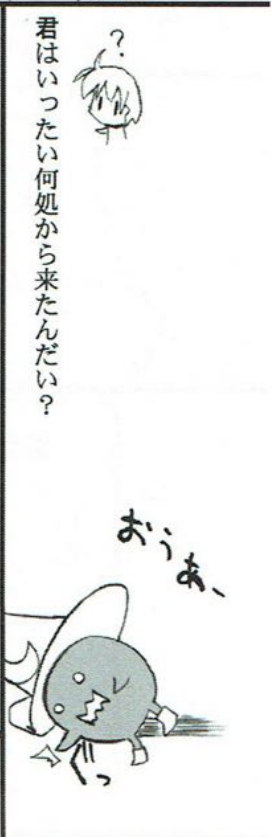 ?
君はいったい何処から来たんだい?
おぅあ、